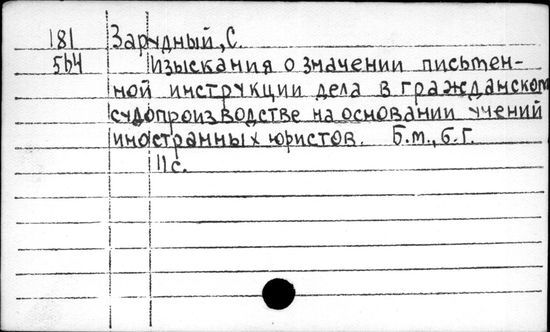 181 Зарудный, С.
564 Изыскания о значении письмен-
ной инструкции дела в гражданском
судопроизводстве на основании учений
иностранных юристов. Б.м., б.г.
11 с.